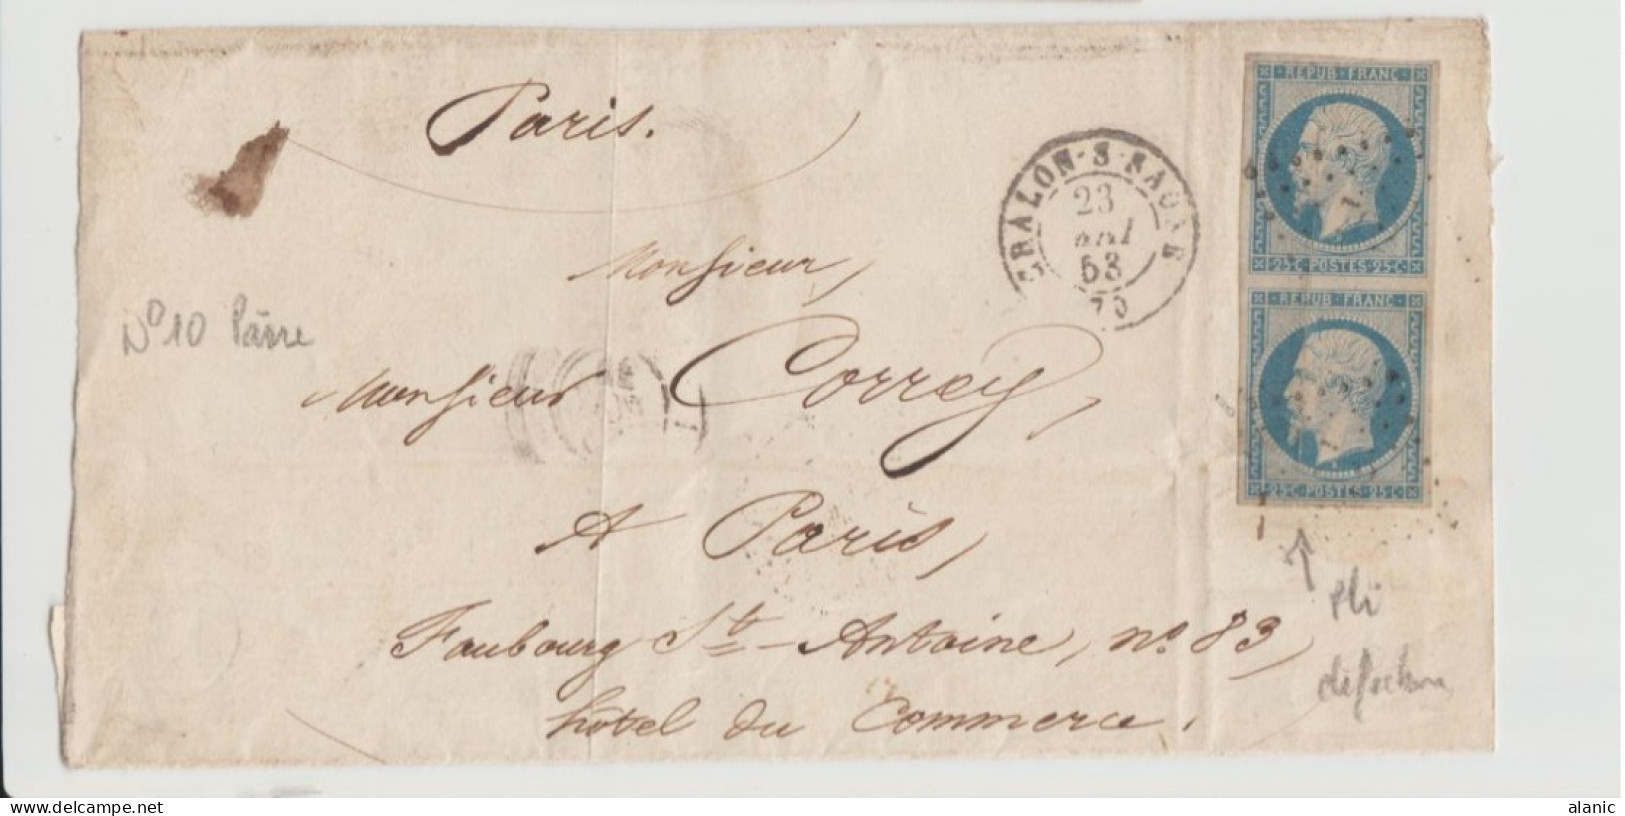 Paris.
CHALON-S-SAONE
23
53
REPUB·FRANC·
25·C·POSTES·25·C
REPUB·FRANC·
25·C·POSTES·25·C
Monsieur,
N° 10 Paire
Monsieur Correy,
A Paris,
Faubourg St-Antoine, n° 83,
hôtel du Commerce.
Pli
www.delcampe.net
alanic